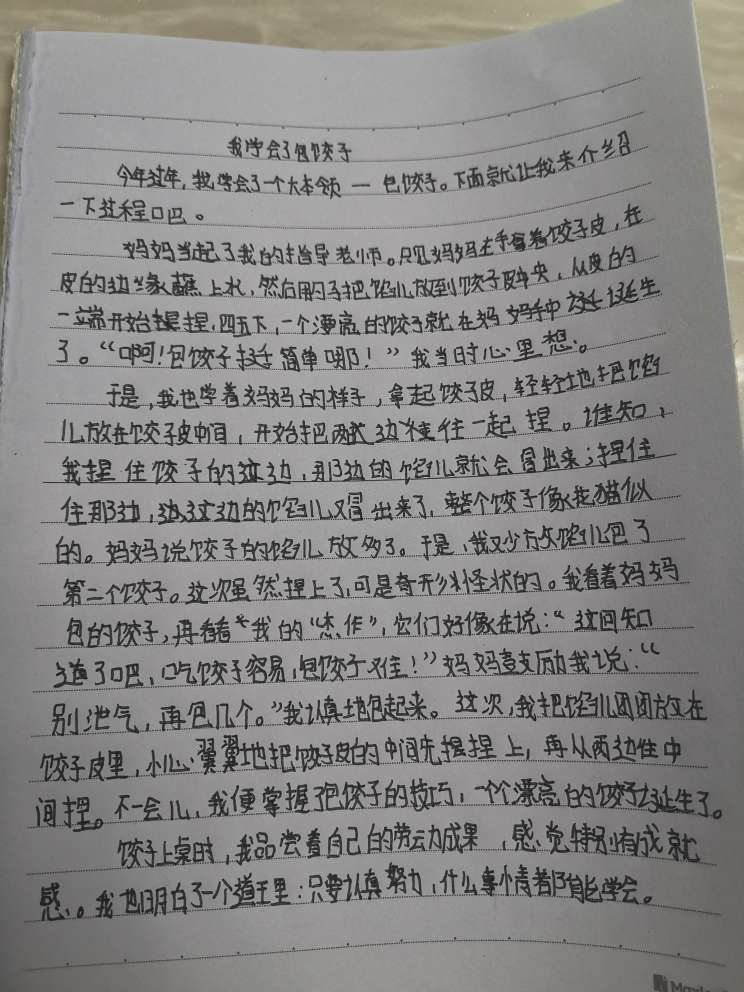 我学会了包饺子
今年过年，我学会了一个大本领一包饺子。下面就让我来介绍
一下过程吧。
妈妈当起了我的指导老师。只见妈妈左手拿着饺子皮，在
皮的边缘蘸上水，然后用勺子把馅儿放到饺子皮中央，从皮的
一端开始捏捏，四五下，一个漂亮的饺子就在妈妈手中诞生
了。“啊！包饺子挺简单哪！”我当时心里想。
于是，我也学着妈妈的样子，拿起饺子皮，轻轻地把馅
儿放在饺子皮中间，开始把两边往一起捏。谁知，
我捏住饺子的这边，那边的馅儿就会冒出来；捏住
住那边，这边的馅儿又冒出来了，整个饺子像花猫似
的。妈妈说饺子的馅儿放多了。于是，我又少放馅儿包了
第二个饺子。这次虽然捏上了，可是奇形怪状的。我看着妈妈
包的饺子，再看看我的“杰作”，它们好像在说：“这回知
道了吧，吃饺子容易，包饺子难！”妈妈鼓励我说：“
别泄气，再包几个。”我认真地包起来。这次，我把馅儿团团放在
饺子皮里，小心翼翼地把饺子皮的中间先捏捏上，再从两边往中
间捏。不一会儿，我便掌握了包饺子的技巧，一个个漂亮的饺子诞生了。
饺子上桌时，我品尝着自己的劳动成果，感觉特别有成就
感。我也明白了一个道理：只要认真努力，什么事情都能学会。